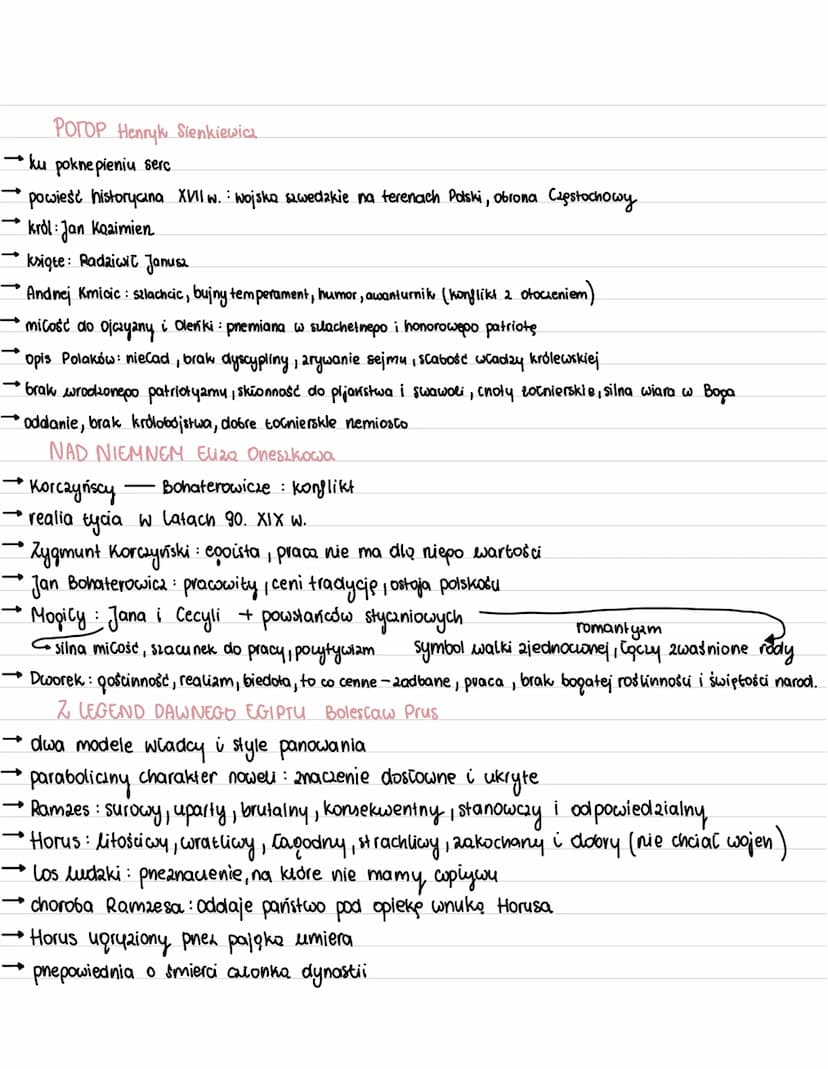 POTOP Henryk Sienkiewicz
→ ku pokrzepieniu serc
→ powieść historyczna XVII w. : wojska szwedzkie na terenach Polski, obrona Częstochowy
→ król: Jan Kazimierz
→ książe: Radziwił Janusz
→ Andrzej Kmicic : szlachcic, bujny temperament, humor, awanturnik (konflikt z otoczeniem)
→ miłość do Ojczyzny i Oleńki : przemiana w szlachetnego i honorowego patriotę
→ opis Polaków: nieład, brak dyscypliny, zrywanie sejmu, słabość władzy królewskiej
→ brak wrodzonego patriotyzmu, skłonność do pijaństwa i swawoli, cnoty żołnierskie, silna wiara w Boga
→ oddanie, brak królobójstwa, dobre żołnierskie rzemiosło
NAD NIEMNEM Eliza Orzeszkowa
→ Korczyńscy — Bohaterowicze : konflikt
→ realia życia w latach 90. XIX w.
→ Zygmunt Korczyński : egoista, praca nie ma dla niego wartości
→ Jan Bohaterowicz : pracowity, ceni tradycję, ostoja polskości
→ Mogiły : Jana i Cecyli + powstańców styczniowych
romantyzm
silna miłość, szacunek do pracy, pozytywizm symbol walki zjednoczonej, łączy zwaśnione rody
→ Dworek : gościnność, realizm, biedota, to co cenne - zadbane, praca, brak bogatej roślinności i świętości narod.
Z LEGEND DAWNEGO EGIPTU Bolesław Prus
→ dwa modele władcy i style panowania
→ paraboliczny charakter noweli : znaczenie dosłowne i ukryte
→ Ramzes : surowy, uparty, brutalny, konsekwentny, stanowczy i odpowiedzialny
→ Horus : litościwy, wrażliwy, łagodny, strachliwy, zakochany i dobry (nie chciał wojen)
→ Los ludzki : przeznaczenie, na które nie mamy wpływu
→ choroba Ramzesa : oddaje państwo pod opiekę wnuka Horusa
→ Horus ugryziony przez pająka umiera
→ przepowiednia o śmierci członka dynastii